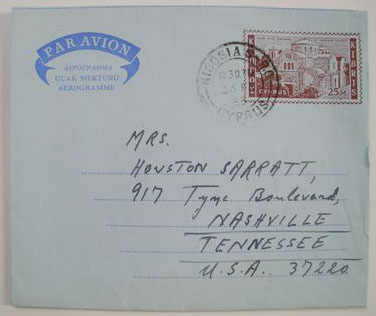 PAR AVION
ΑΕΡΟΓΡΑΜΜΑ
UÇAK MEKTUBU
AEROGRAMME
NICOSIA
CYPRUS
KIBRIS
CYPRUS
25 M
MRS.
HOUSTON SARRATT,
917 Tyne Boulevard,
NASHVILLE
TENNESSEE
U.S.A. 37220